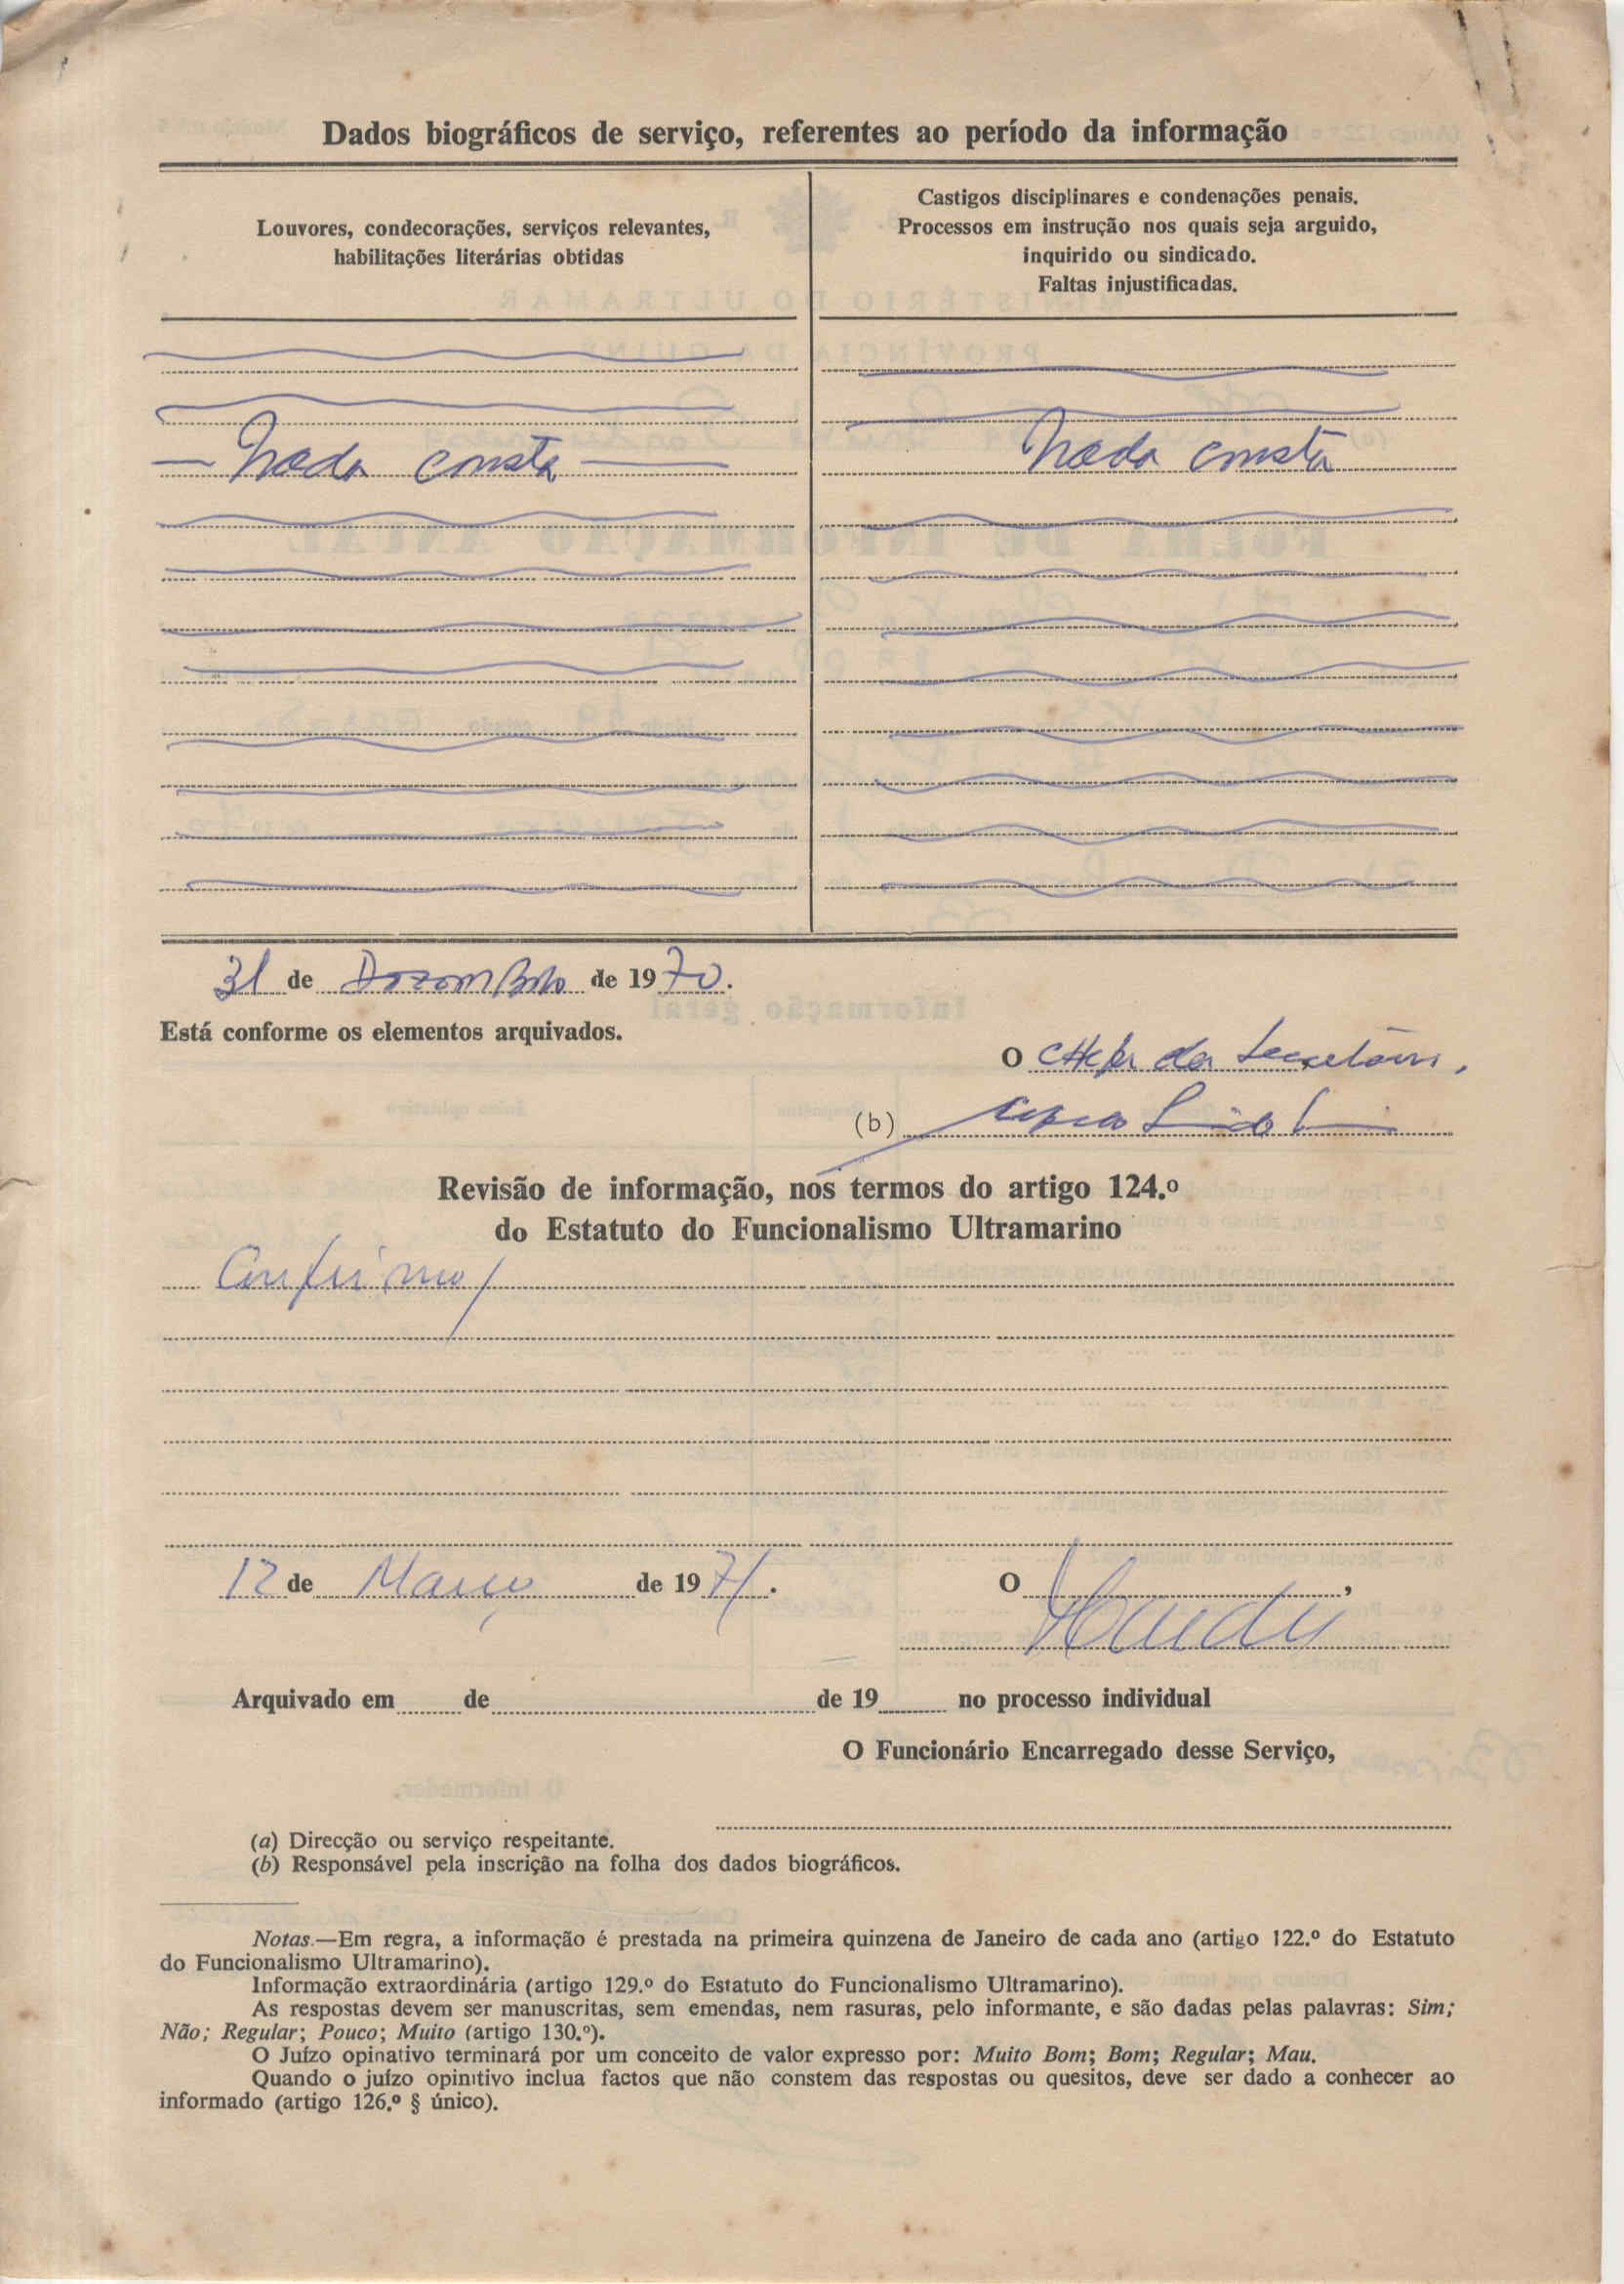 Dados biográficos de serviço, referentes ao período da informação
Louvores, condecorações, serviços relevantes,
habilitações literárias obtidas
Castigos disciplinares e condenações penais.
Processos em instrução nos quais seja arguido,
inquirido ou sindicado.
Faltas injustificadas.
— Nada consta —
Nada consta
31 de Dezembro de 1970.
Está conforme os elementos arquivados.
O Chefe da Secretaria,
(b)
Revisão de informação, nos termos do artigo 124.º
do Estatuto do Funcionalismo Ultramarino
Confirmo
12 de Março de 1971.
O ,
Arquivado em de de 19 no processo individual
O Funcionário Encarregado desse Serviço,
(a) Direcção ou serviço respeitante.
(b) Responsável pela inscrição na folha dos dados biográficos.
Notas.—Em regra, a informação é prestada na primeira quinzena de Janeiro de cada ano (artigo 122.º do Estatuto
do Funcionalismo Ultramarino).
Informação extraordinária (artigo 129.º do Estatuto do Funcionalismo Ultramarino).
As respostas devem ser manuscritas, sem emendas, nem rasuras, pelo informante, e são dadas pelas palavras: Sim;
Não; Regular; Pouco; Muito (artigo 130.º).
O Juízo opinativo terminará por um conceito de valor expresso por: Muito Bom; Bom; Regular; Mau.
Quando o juízo opinitivo inclua factos que não constem das respostas ou quesitos, deve ser dado a conhecer ao
informado (artigo 126.º § único).